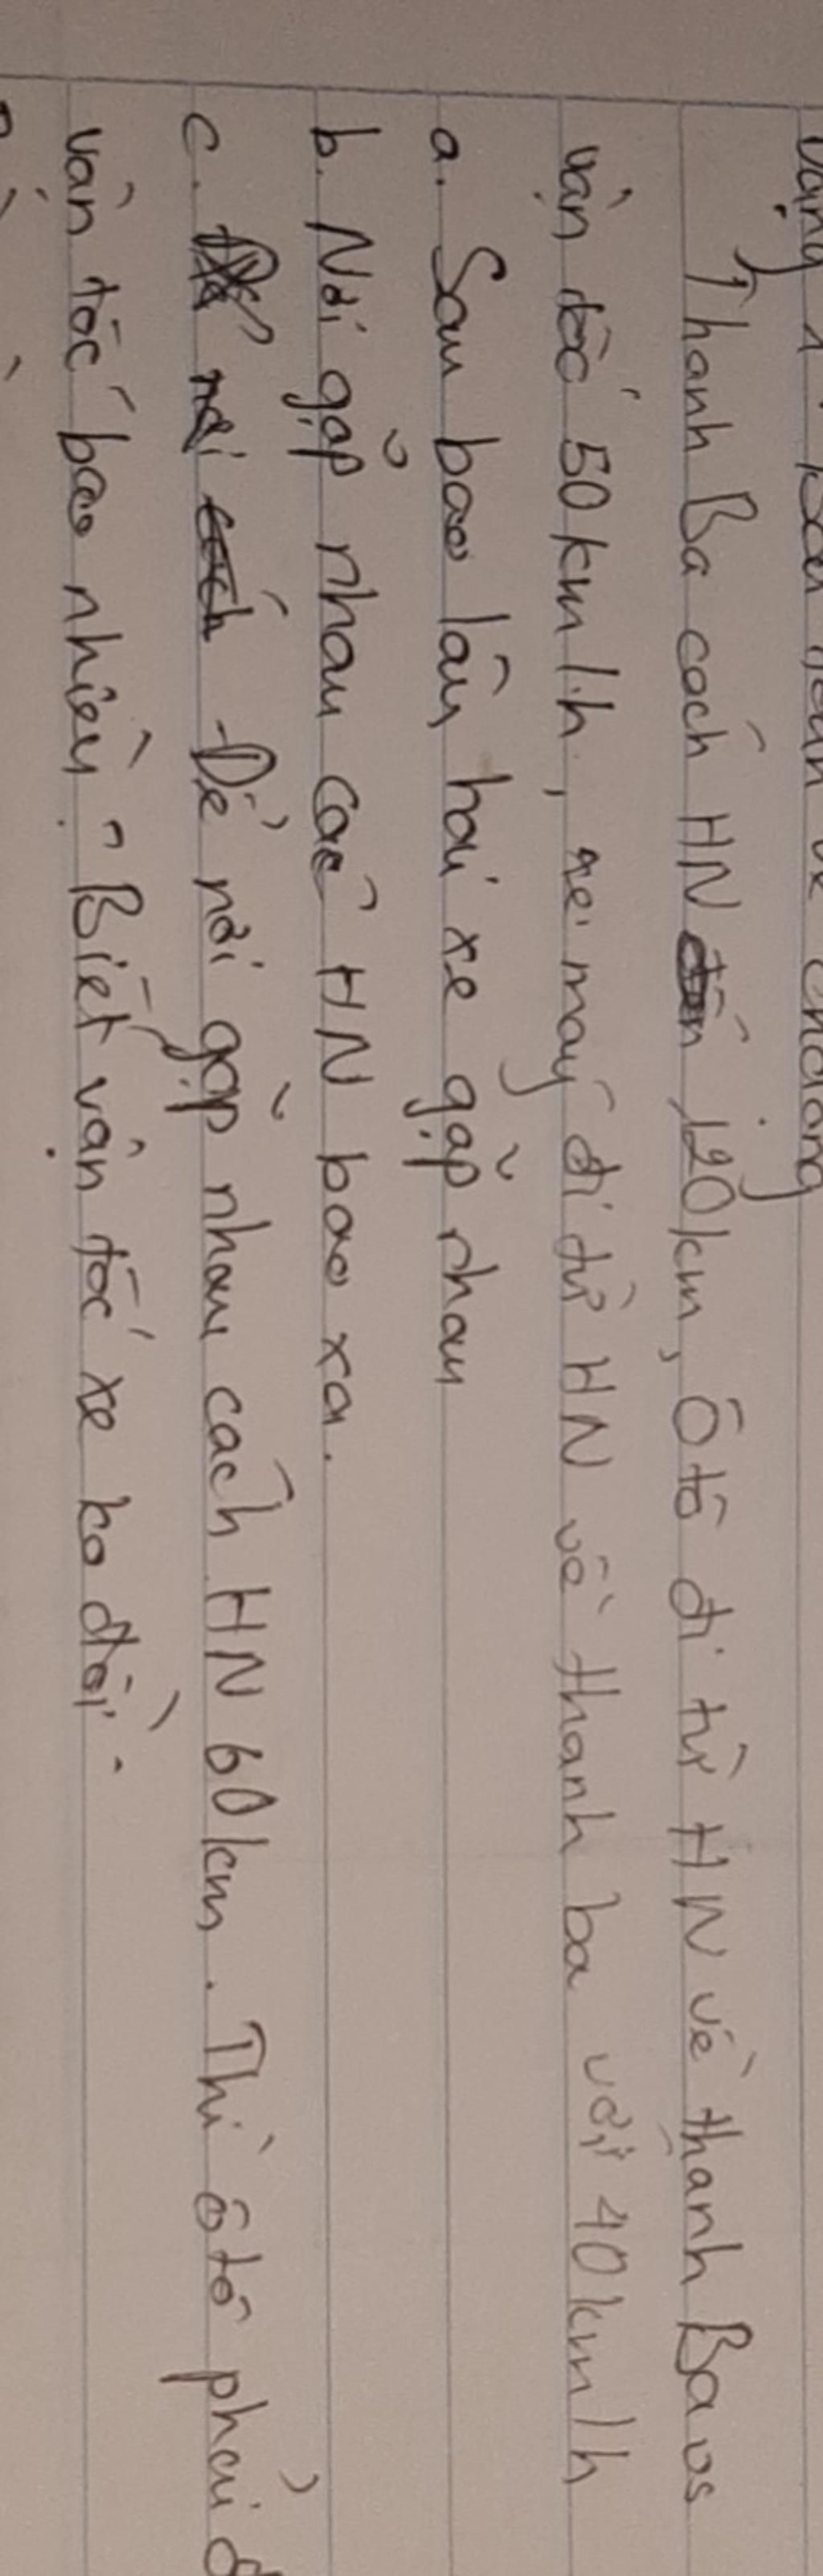 Thanh Ba cách HN 120km, Ô tô đi từ HN về thanh Ba vs
vận tốc 50km/h, xe máy đi từ HN về thanh ba với 40km/h
a. Sau bao lâu hai xe gặp nhau
b. Nơi gặp nhau các HN bao xa.
c. nơi Để nơi gặp nhau cách HN 60km. Thì ô tô phải
vận tốc bao nhiêu? Biết vận tốc xe ko đổi.